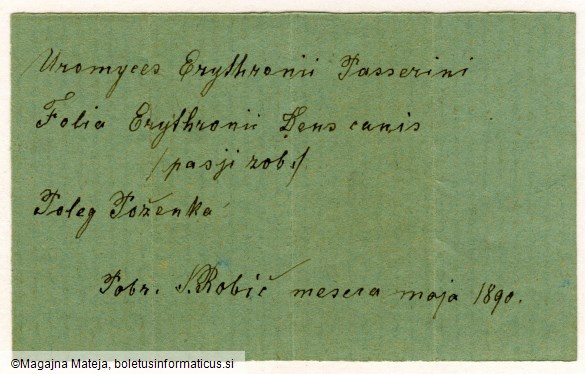 Uromyces Erythronii Passerini
Folia Erythronii Dens canis
/pasji zob./
Poleg Poženka
Pobr. S. Robič meseca maja 1890.
©Magajna Mateja, boletusinformaticus.si